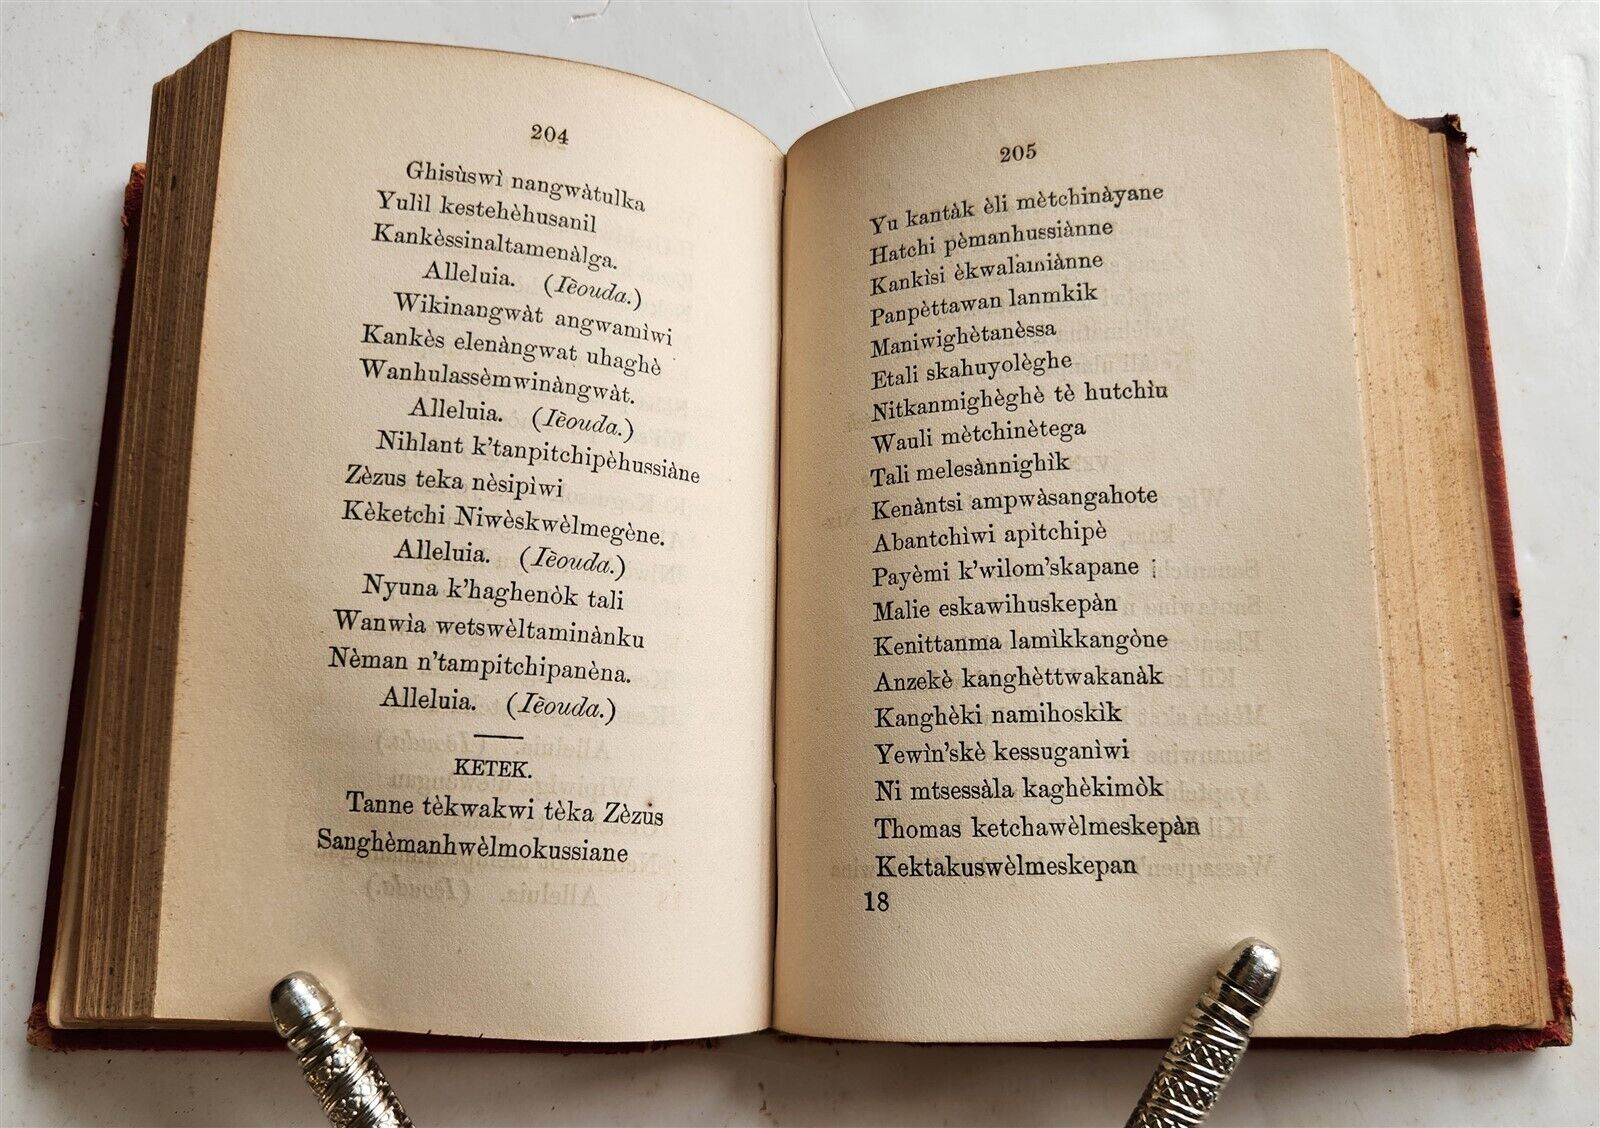 204
Ghisùswì nangwàtulka
Yulìl kestehèhusanil
Kankèssinaltamenàlga.
Alleluia. (Ièouda.)
Wikinangwàt angwamìwi
Kankès elenàngwat uhaghè
Wanhulassèmwinàngwàt.
Alleluia. (Ièouda.)
Nihlant k'tanpitchipèhussiàne
Zèzus teka nèsipìwi
Kèketchi Niwèskwèlmegène.
Alleluia. (Ièouda.)
Nyuna k'haghenòk tali
Wanwìa wetswèltaminànku
Nèman n'tampitchipanèna.
Alleluia. (Ièouda.)
KETEK.
Tanne tèkwakwi tèka Zèzus
Sanghèmanhwèlmokussiane
205
Yu kantàk èli mètchinàyane
Hatchi pèmanhussiànne
Kankìsi èkwalamiànne
Panpèttawan lanmkik
Maniwighètanèssa
Etali skahuyolèghe
Nitkanmighèghè tè hutchìu
Wauli mètchinètega
Tali melesànnighìk
Kenàntsi ampwàsangahote
Abantchìwi apìtchipè
Payèmi k'wilom'skapane
Malie eskawihuskepàn
Kenittanma lamìkkangòne
Anzekè kanghèttwakanàk
Kanghèki namihoskìk
Yewìn'skè kessuganìwi
Ni mtsessàla kaghèkimòk
Thomas ketchawèlmeskepàn
Kektakuswèlmeskepan
18